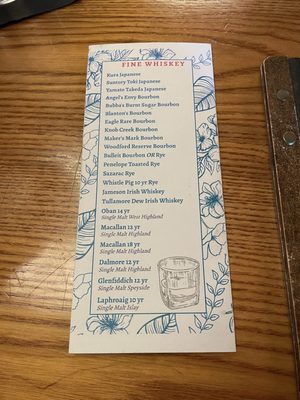 FINE WHISKEY
Kura Japanese
Suntory Toki Japanese
Yamato Takeda Japanese
Angel's Envy Bourbon
Bubba's Burnt Sugar Bourbon
Blanton's Bourbon
Eagle Rare Bourbon
Knob Creek Bourbon
Maker's Mark Bourbon
Woodford Reserve Bourbon
Bulleit Bourbon OR Rye
Penelope Toasted Rye
Sazarac Rye
Whistle Pig 10 yr Rye
Jameson Irish Whiskey
Tullamore Dew Irish Whiskey
Oban 14 yr
Single Malt West Highland
Macallan 12 yr
Single Malt Highland
Macallan 18 yr
Single Malt Highland
Dalmore 12 yr
Single Malt Highland
Glenfiddich 12 yr
Single Malt Speyside
Laphroaig 10 yr
Single Malt Islay